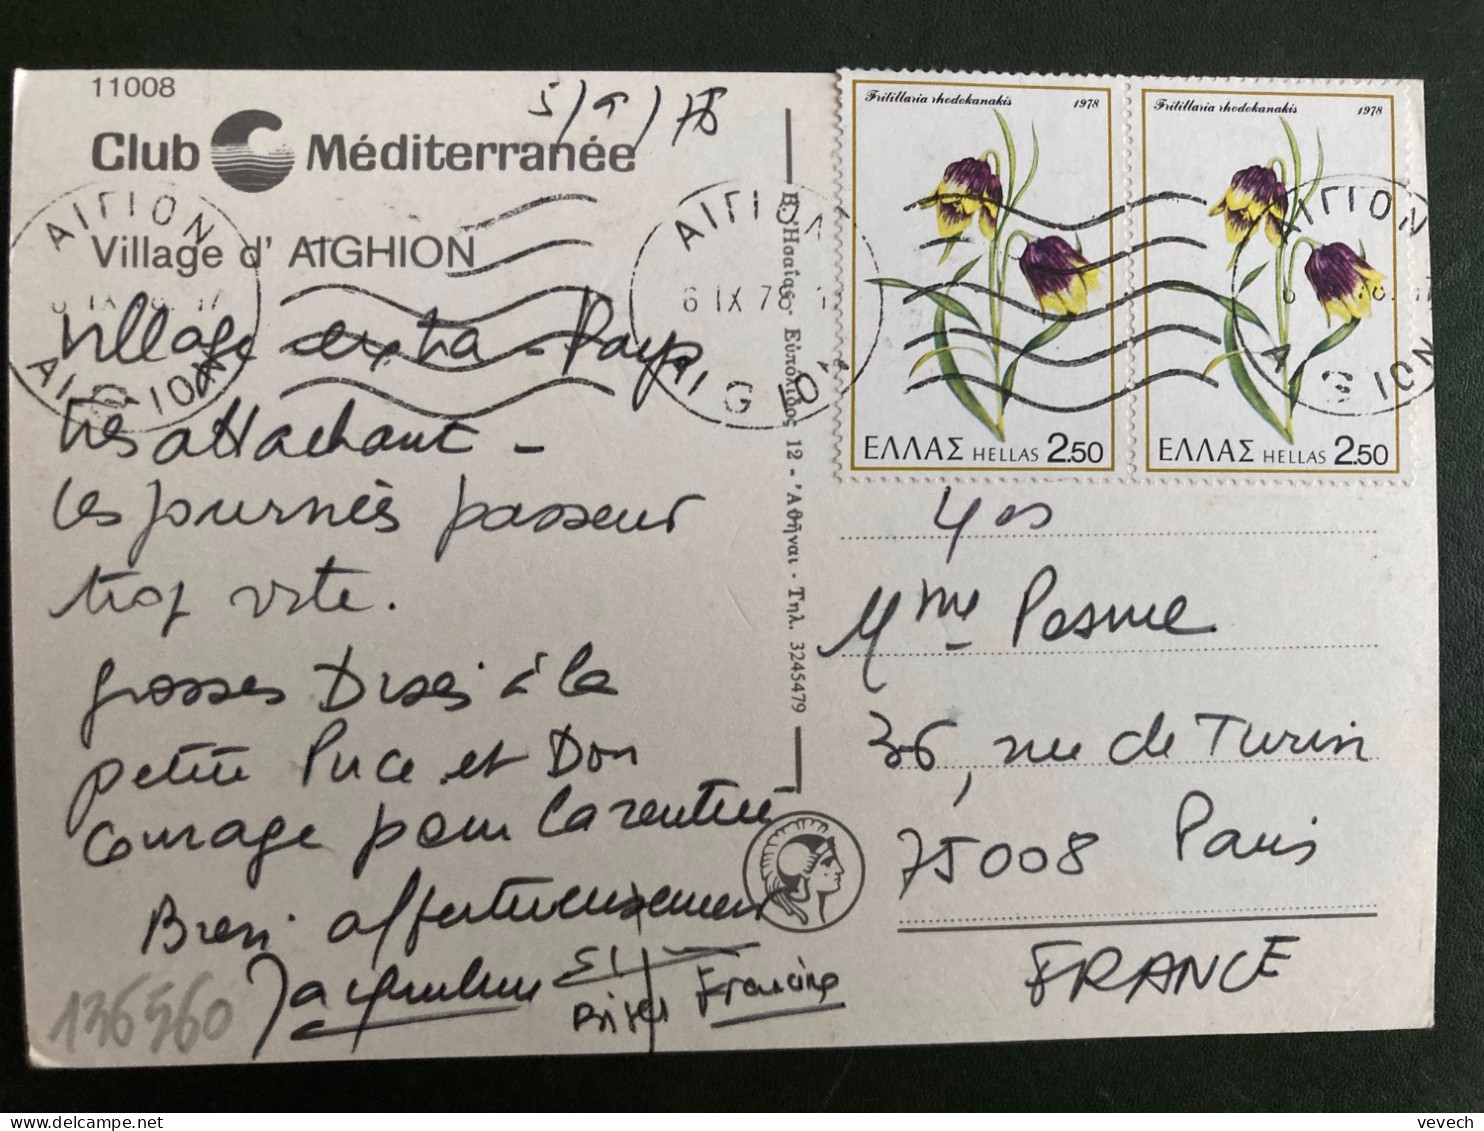 11008
5/9/78
Club Méditerranée
Village d' AIGHION
ΑΙΓΙΟΝ
6 IX 78 17
AIGION
ΑΙΓΙΟΝ
6 IX 78
AIGION
ΑΙΓΙΟΝ
AIGION
Village extra - Pays
très attachant -
les journées passent
trop vite.
grosses Bises à la
petite Puce et Bon
courage pour la rentrée
Bien affectueusement
Jacqueline et
Bises Francine
136560
Εὐπόλιδος 12 - Ἀθῆναι - Τηλ. 3245479
Fritillaria rhodokanakis 1978
ΕΛΛΑΣ HELLAS 2.50
Fritillaria rhodokanakis 1978
ΕΛΛΑΣ HELLAS 2.50
Mme
36, rue de Turin
75008 Paris
FRANCE
vevech